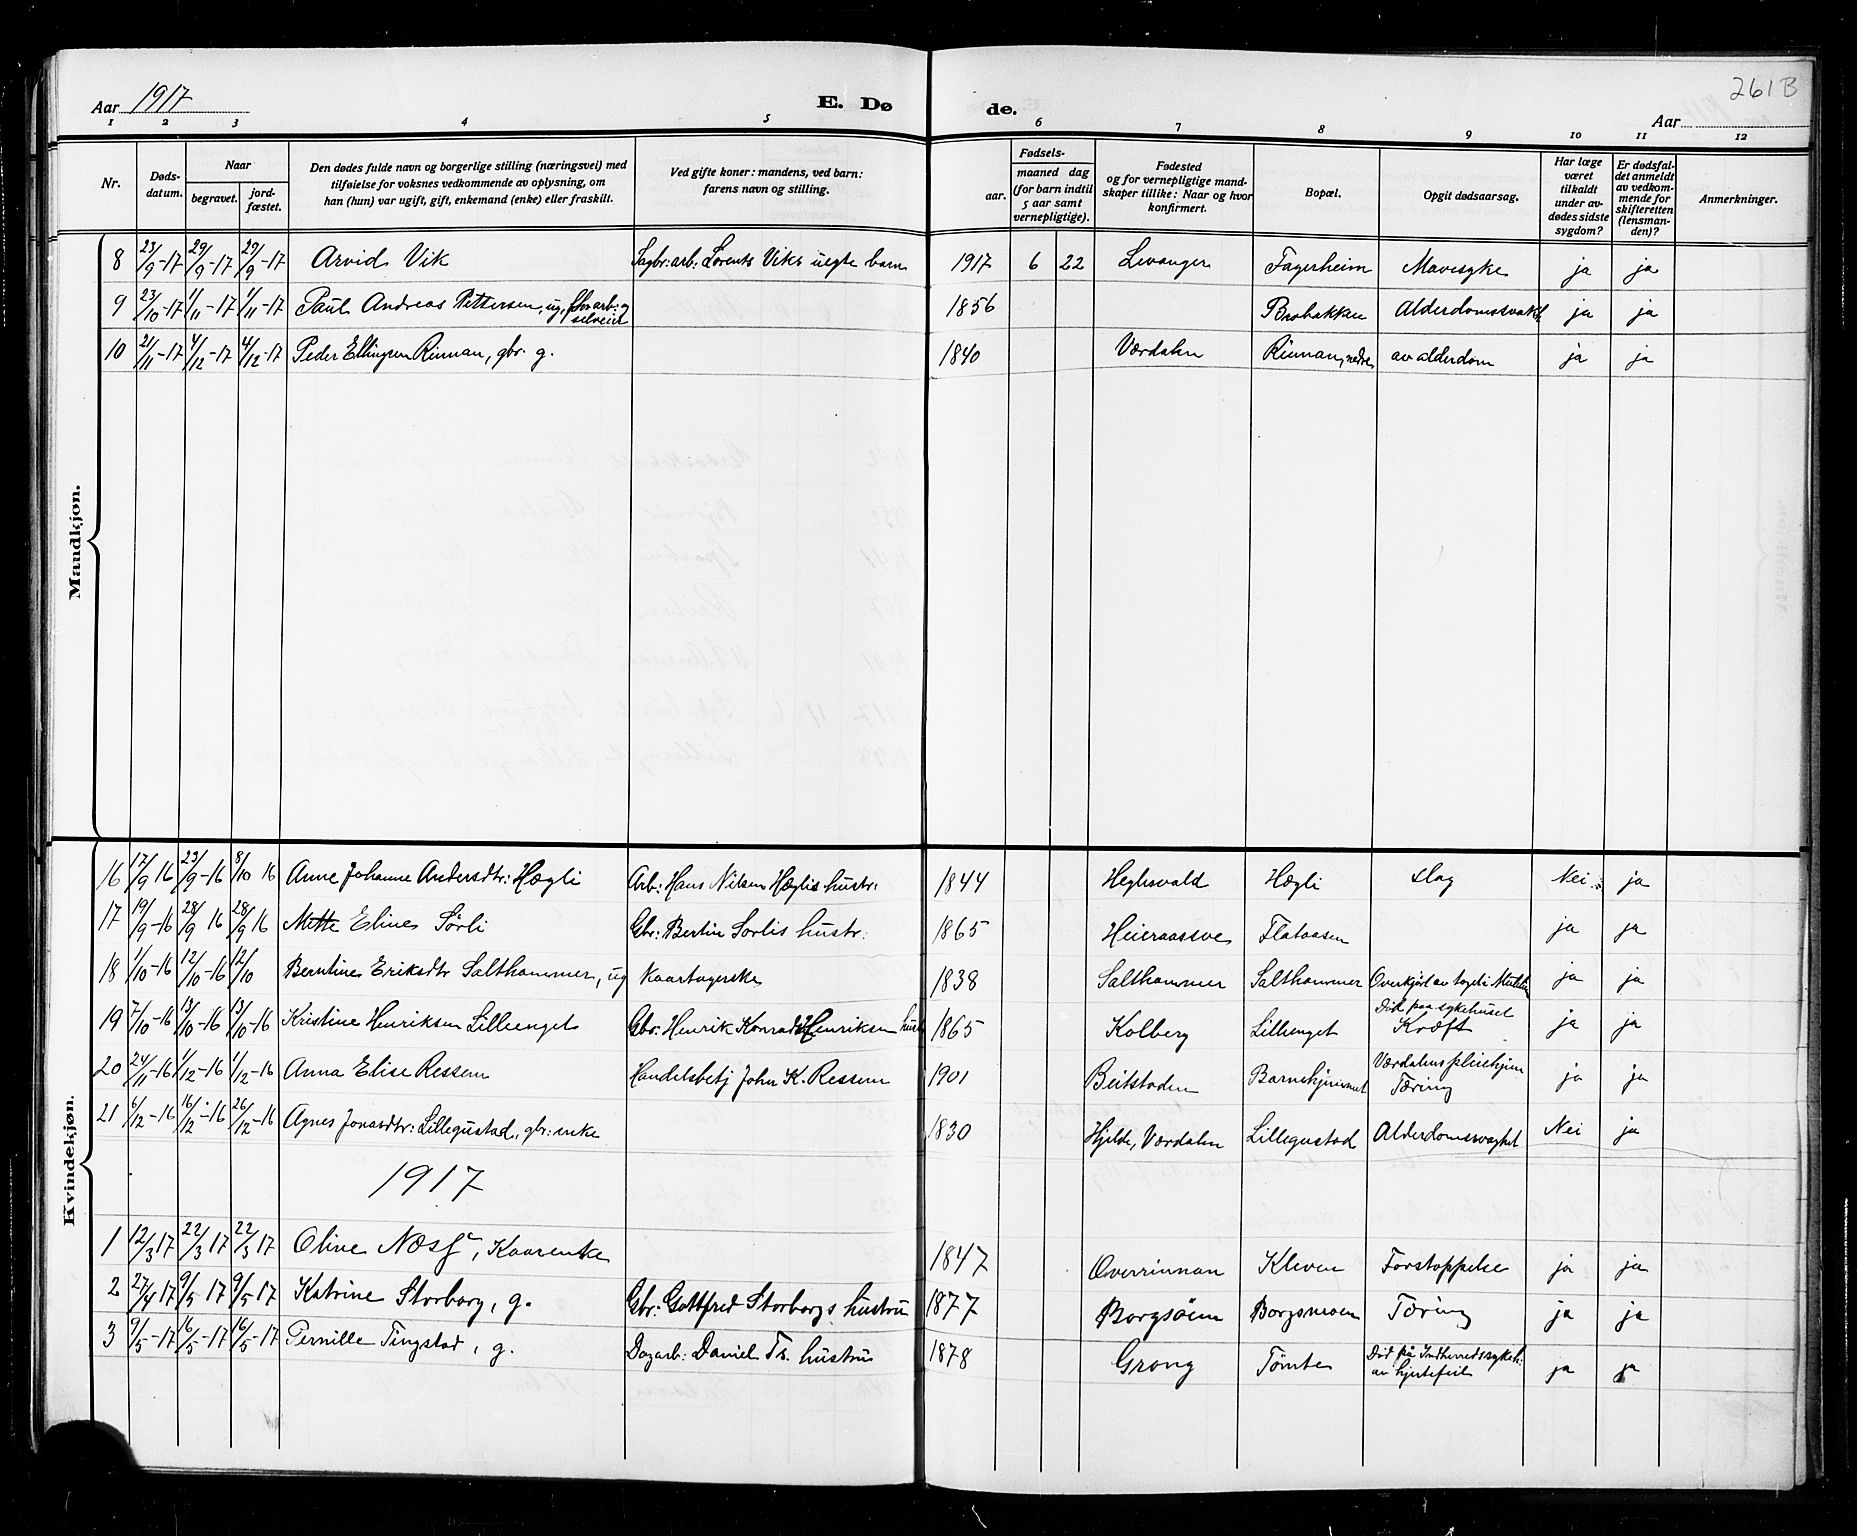 261 B
Aar 1917
E. Dø
de.
Aar
1 2 3 4 5 6 7 8 9 10 11 12
Nr.
Døds-
datum.
Naar
begravet.
jord-
fæstet.
Den dødes fulde navn og borgerlige stilling (næringsvei) med
tilføielse for voksnes vedkommende av oplysning, om
han (hun) var ugift, gift, enkemand (enke) eller fraskilt.
Ved gifte koner: mandens, ved barn:
farens navn og stilling.
Fødsels-
aar.
maaned dag
(for barn indtil
5 aar samt
vernepligtige).
Fødested
og for vernepligtige mand-
skaper tillike: Naar og hvor
konfirmert.
Bopæl.
Opgit dødsaarsag.
Har læge
været
tilkaldt
under av-
dødes sidste
sygdom?
Er dødsfal-
det anmeldt
av vedkom-
mende for
skifteretten
(lensman-
den)?
Anmerkninger.
Mandkjøn.
8 23/9-17 29/9-17 29/9-17 Arvid Vik Sagbr: arb: Lorents Viks uegte barn 1917 6 22 Levanger Fagerheim Mavesyke ja ja
9 23/10-17 1/11-17 1/11-17 Paul Andreas Pettersen, ug, 1856 Brobakken Alderdomssvakh ja ja
10 21/11-17 4/12-17 4/12-17 Peder Ellingsen Rinnan, gbr. g. 1840 Værdalen Rinnan, nedre av alderdom ja ja
Kvindekjøn.
16 17/9 16 23/9-16 8/10 16 Anne Johanne Andersdtr: Hægli Arb: Hans Nilsen Hæglis hustr: 1844 Heglesvald Hægli Slag Nei ja
17 19/9-16 28/9 16 28/9 16 Mette Eline Sørli Gbr: Bertin Sørlis hustr: 1865 Heieraassve Flataasen ja ja
18 1/10-16 12/10-16 12/10 Berntine Eriksdtr Salthammer, ug Kaartagerske 1838 Salthammer Salthammer Overkjørt av toget i ja ja
19 7/10-16 13/10-16 13/10-16 Kristine Henriksen Lilleenget Gbr: Henrik Konrad Henriksen hust 1865 Kolberg Lilleenget Død paa sykehuset
Kræft ja ja
20 24/11-16 1/12-16 1/12-16 Anna Elise Ressem Handelsbetj John K. Ressem 1901 Beitstaden Barnehjemmet Værdalens pleiehjem
Tæring ja ja
21 6/12-16 16/12-16 26/12-16 Agnes Jonasdtr: Lillegustad, gbr: enke 1830 Hjelde, Værdalen Lillegustad Alderdomssvaghet Nei ja
1917
1 12/3 17 22/3 17 22/3 17 Oline Næss, Kaarenke 1847 Overrinnan Kleven Forstoppelse ja ja
2 27/4 17 9/5 17 9/5 17 Katrine Storborg, g. Gbr: Gottfred Storborgs hustru 1877 Borgsöen Borgsmoen Tæring ja ja
3 9/5-17 16/5-17 16/5-17 Pernille Tingstad, g. Dagarb: Daniel Ts. hustru 1878 Grong Tømte Død på Indherredssykeh:
av hjertefeil ja ja